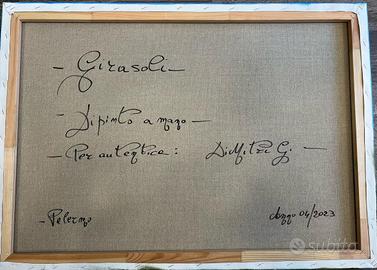 - Girasoli -
- Dipinto a mano -
- Per autentica: DiMitri G. -
- Palermo
Anno 04/2023
subito